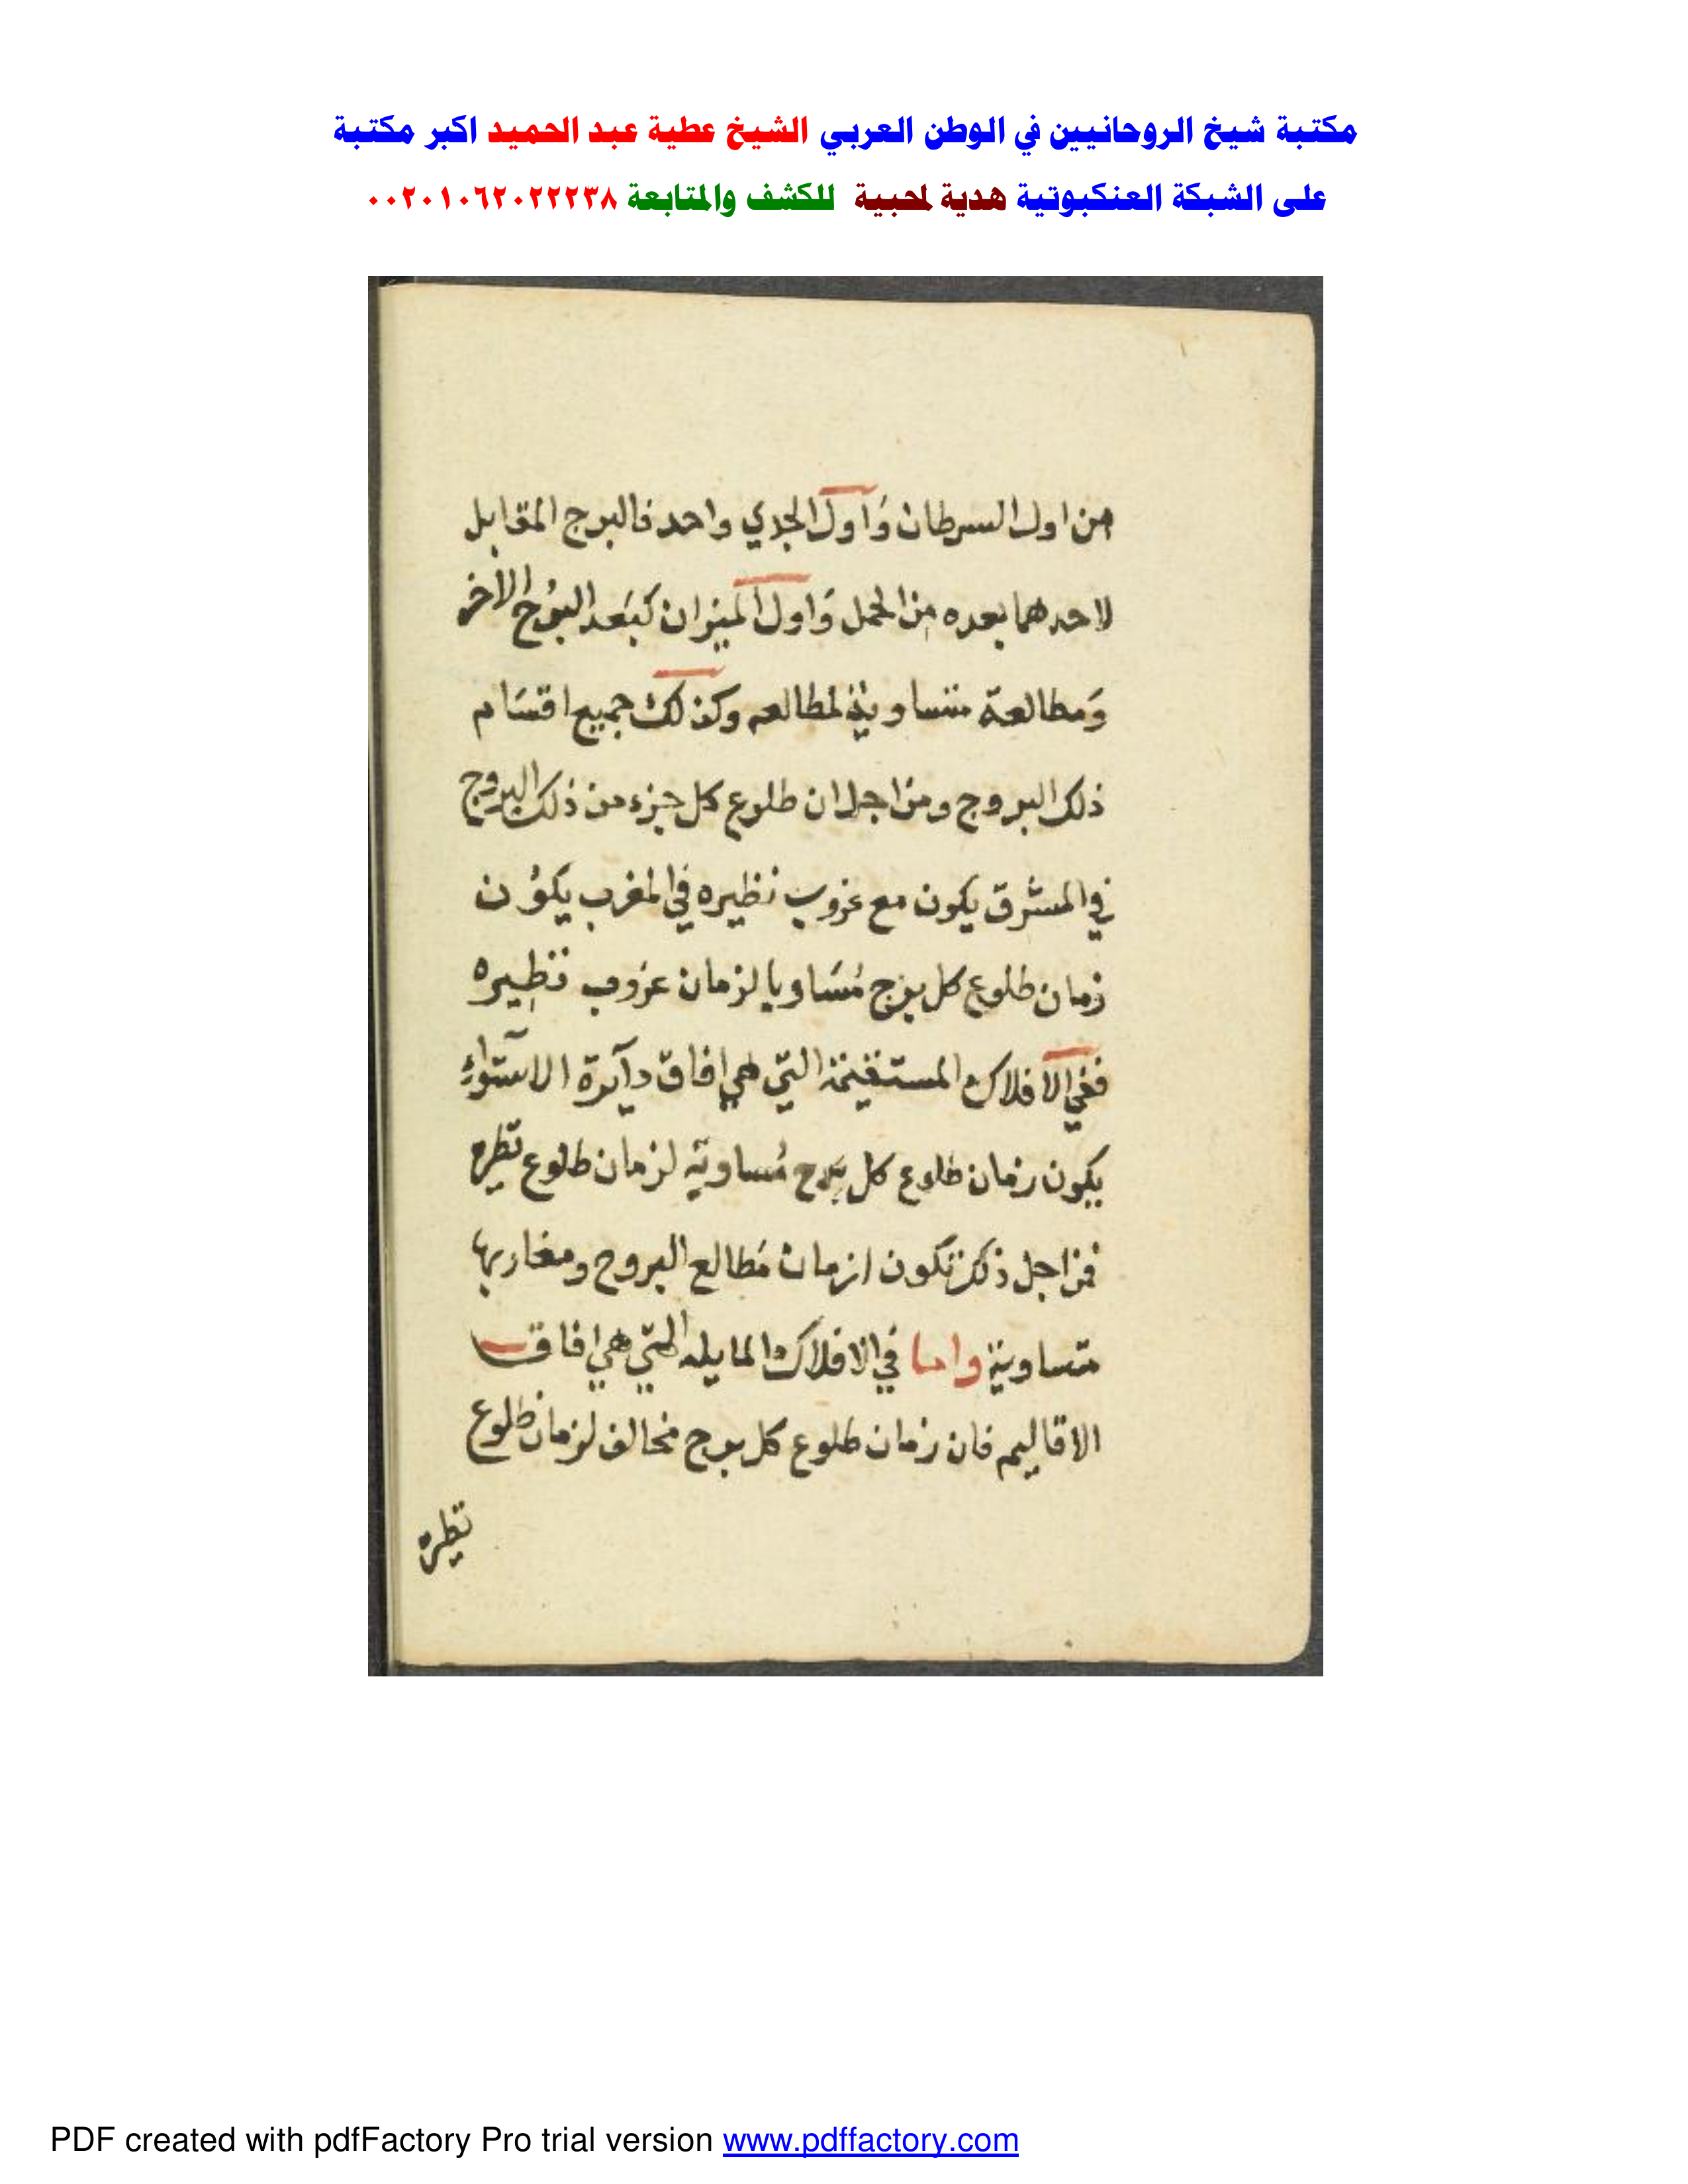 مكتبة شيخ الروحانيين في الوطن العربي الشيخ عطية عبد الحميد اكبر مكتبة
على الشبكة العنكبوتية هدية لمحبية للكشف والمتابعة ٠٠٢٠١٠٦٢٠٢٢٢٣٨
من اول السرطان وَاول الجدي واحد فالبرج المقابل
لاحدهما بعده من الحمل وَاول الميزان كبَعد البرُج الاخر
وَمطالعة متساوية لمطالعه وكذلك جميع اقسَام
ذلك البروج ومن اجل ان طلوع كل جزء من ذلك البروج
في المشرق يكون مع غروب نظيره في المغرب يكوُن
زمان طلوع كل برج مُسَاويا لزمان غروب نظيره
ففي الافلاك المستقيمة التي هي افاق دآيرة الاستوآء
يكون زمان طلوع كل برج مُساوية لزمان طلوع نظره
فمن اجل ذلك تكون ازمان مَطالع البروج ومغاربها
متساوية واما في الافلاك المايله التي هي افاق
الاقاليم فان زمان طلوع كل برج مخالف لزمان طلوع
نظره
PDF created with pdfFactory Pro trial version www.pdffactory.com